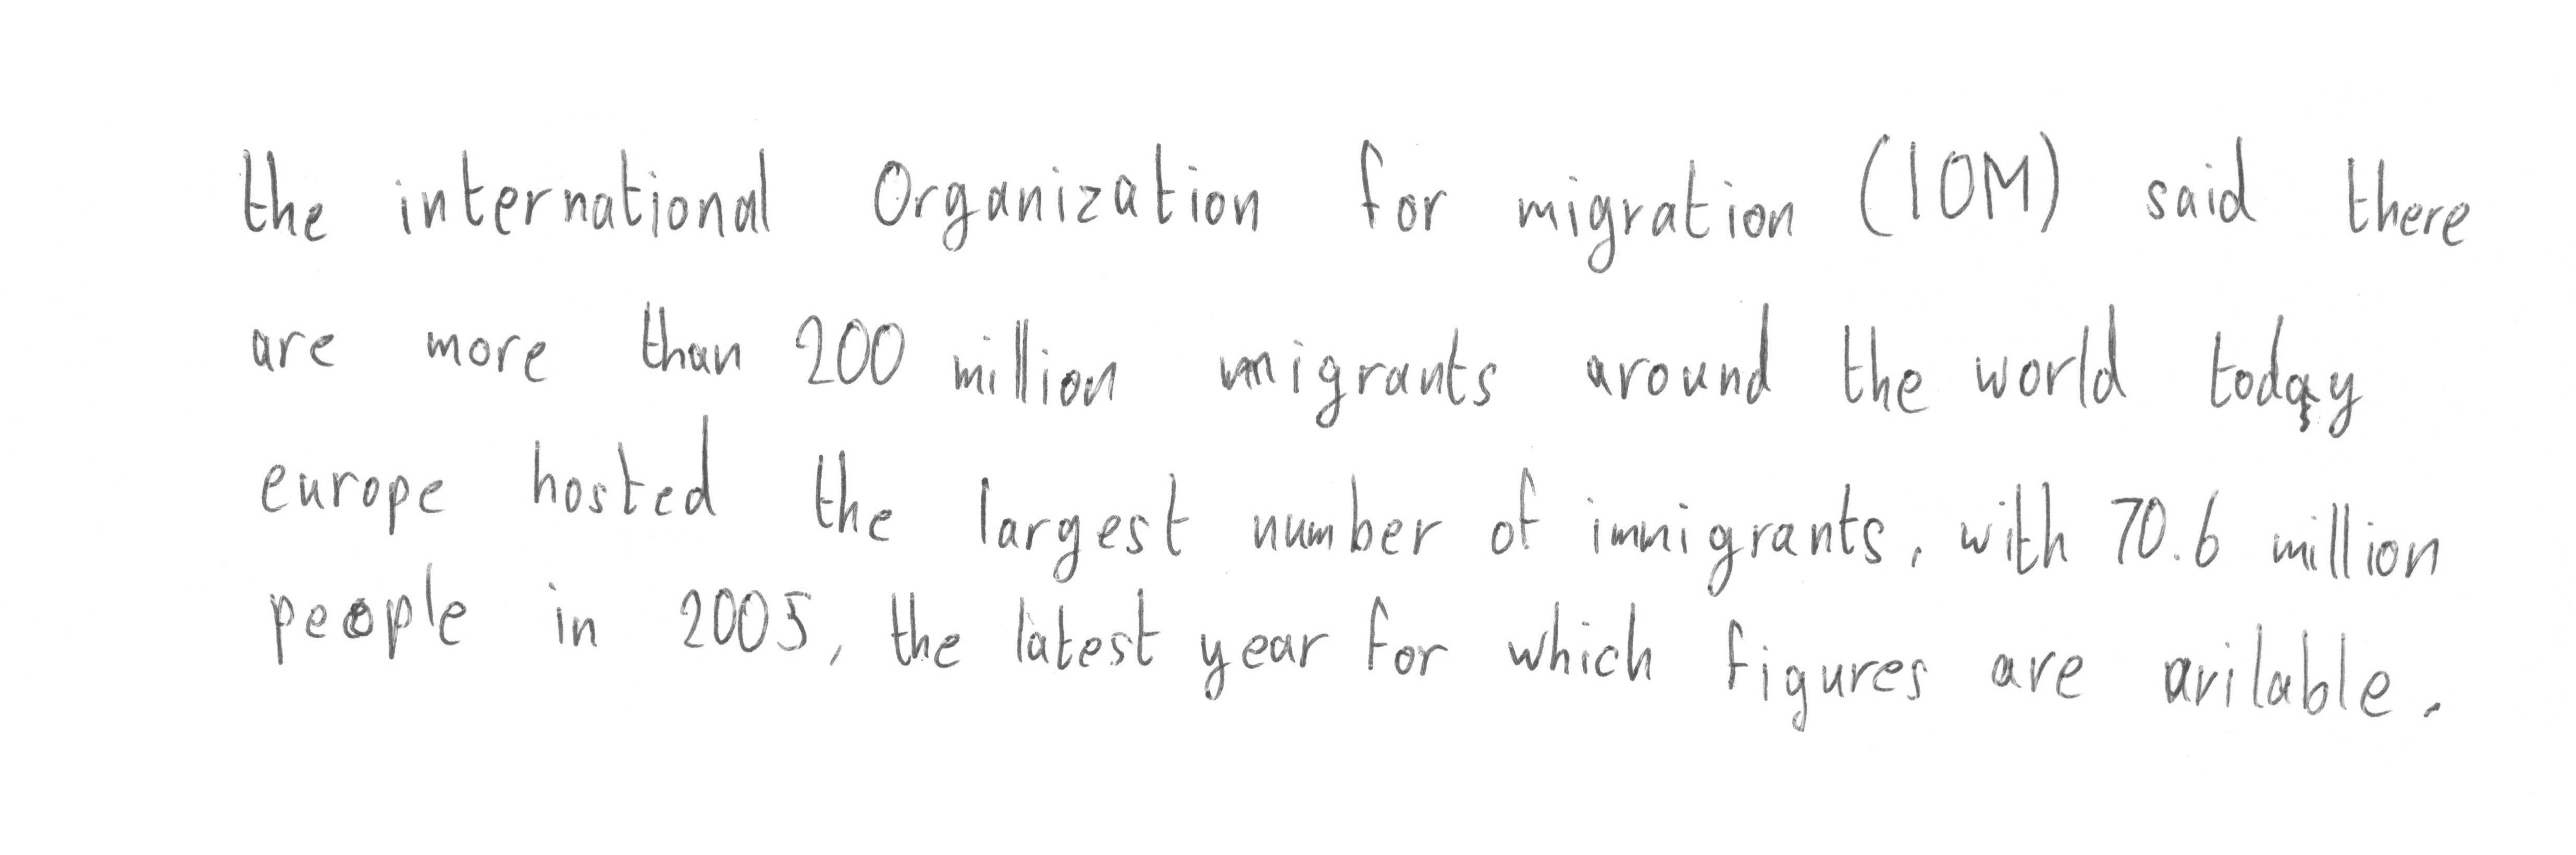 the international Organization for migration (IOM) said there
are more than 200 million migrants around the world today
europe hosted the largest number of immigrants, with 70.6 million
people in 2005, the latest year for which figures are avilable.